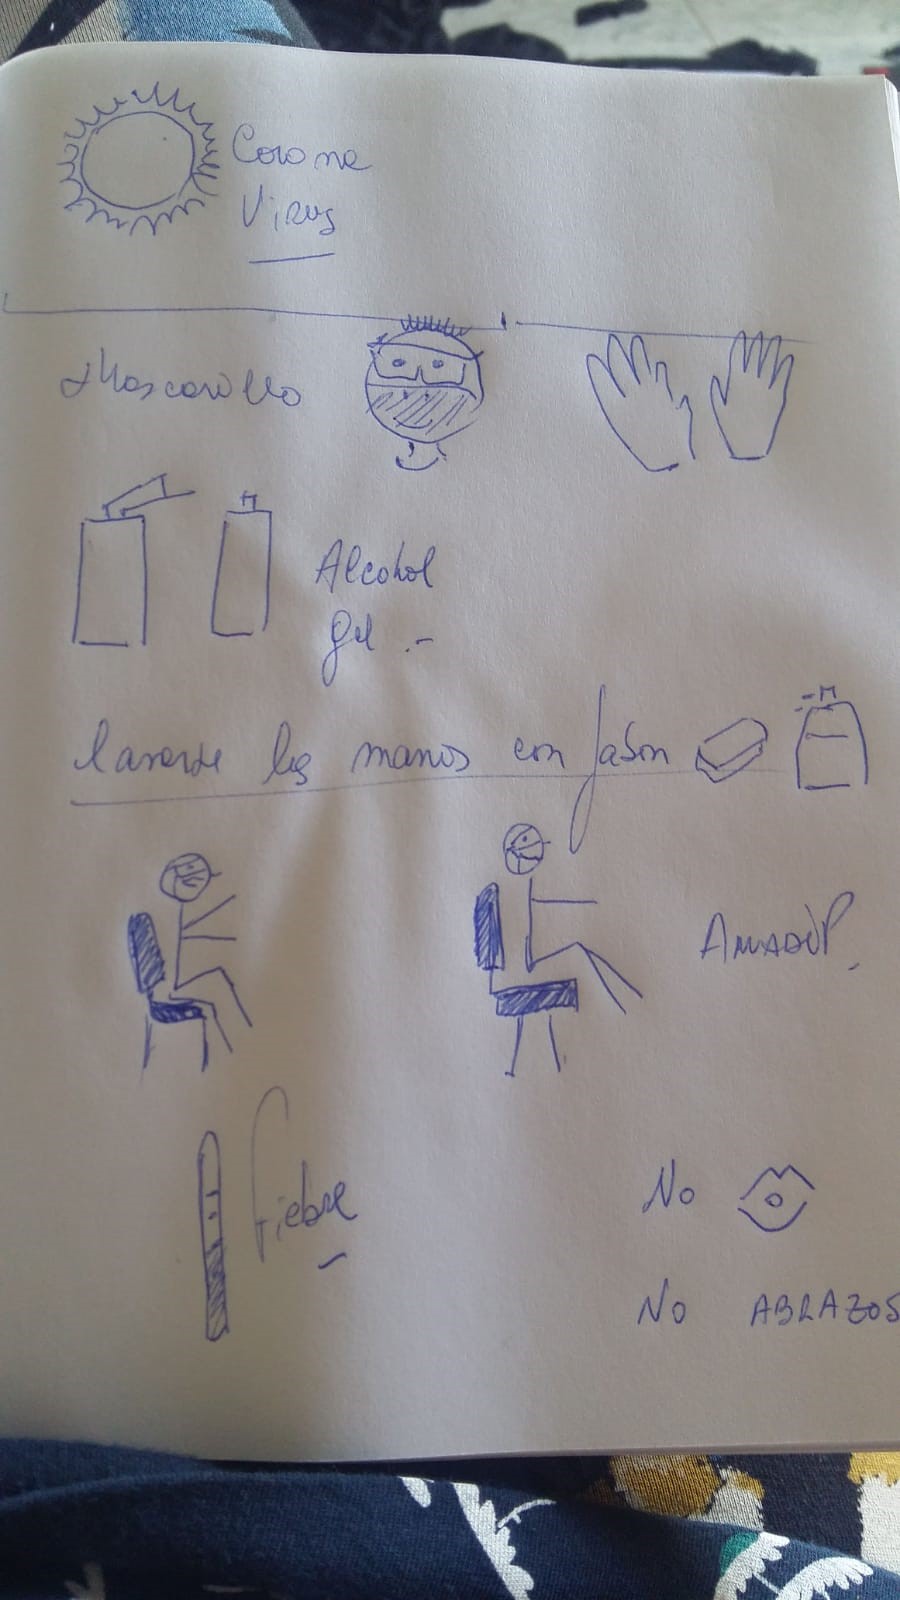 Corona
Virus
Mascarilla
Alcohol
gel .-
lavarse las manos con Jabón
No
Fiebre
No ABRAZOS